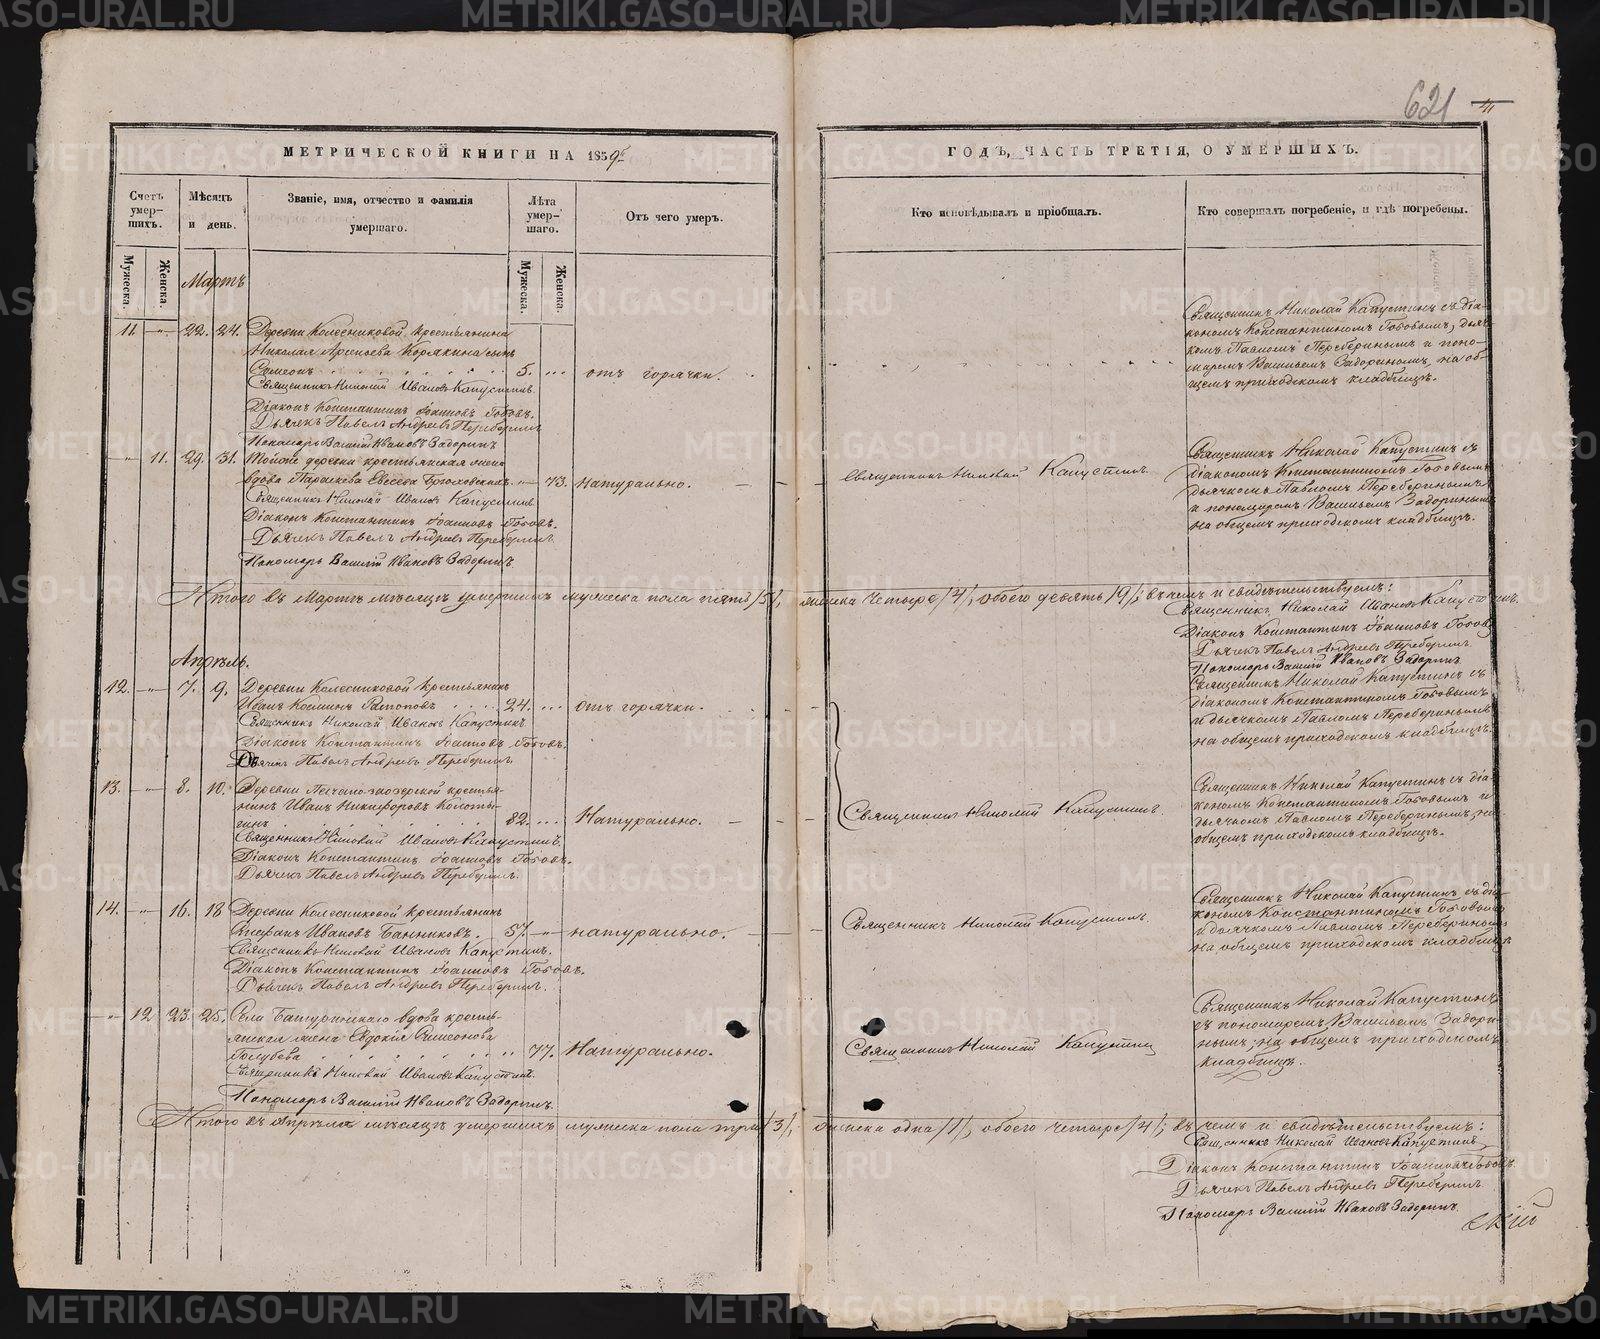 621
МЕТРИЧЕСКОЙ КНИГИ НА 1859
ГОДЪ, ЧАСТЬ ТРЕТІЯ, О УМЕРШИХЪ.
Счетъ умер-шихъ.
Мѣсяцъ и день.
Званіе, имя, отчество и фамилія умершаго.
Лѣта умер-шаго.
Отъ чего умеръ.
Кто исповѣдывалъ и пріобщалъ.
Кто совершалъ погребеніе, и гдѣ погребены.
Мужеска.
Женска.
Мужеска.
Женска.
Мартъ
11. 22. 24. Деревни Колесниковой крестьянина
Николая Арсеньева Корякина сынъ
Симеонъ 5. отъ горячки.
Священникъ Николай Ивановъ Капустинъ.
Діаконъ Константинъ Іоанновъ Гобовъ.
Дьячекъ Павелъ Андреевъ Переберинъ
Пономарь Василій Ивановъ Задоринъ
Священникъ Николай Капустинъ съ діа-
кономъ Константиномъ Гобовымъ, дьяч-
комъ Павломъ Перебеpинымъ и поно-
маремъ Васильемъ Задоринымъ, на об-
щемъ приходскомъ кладбищѣ.
11. 29. 31. Тойже деревни крестьянская жена
вдова Параскева Евсеева 73. натурально.
Священникъ Николай Ивановъ Капустинъ
Діаконъ Константинъ Іоанновъ Гобовъ.
Дьячекъ Павелъ Андреевъ Переберинъ
Пономарь Василій Ивановъ Задоринъ.
Священникъ Николай Капустинъ.
Священникъ Николай Капустинъ съ
діакономъ Константиномъ Гобовымъ
дьячкомъ Павломъ Переберинымъ
и пономаремъ Васильемъ Задоринымъ
на общемъ приходскомъ кладбищѣ.
Итого въ Мартѣ мѣсяцѣ умершихъ мужеска пола пять /5/, женска четыре /4/, обоего девять /9/; въ чемъ и свидѣтельствуемъ:
Священникъ Николай Ивановъ Капустинъ.
Діаконъ Константинъ Іоанновъ Гобовъ
Дьячекъ Павелъ Андреевъ Переберинъ
Пономарь Василій Ивановъ Задоринъ
Апрѣль.
12. 7. 9. Деревни Колесниковой крестьянинъ
Иванъ Космин 24. отъ горячки.
Священникъ Николай Ивановъ Капустинъ.
Діаконъ Константинъ Іоанновъ Гобовъ.
Дьячекъ Павелъ Андреевъ Переберинъ
Священникъ Николай Капустинъ съ
діакономъ Константиномъ Гобовымъ
и дьячкомъ Павломъ Переберинымъ
на общемъ приходскомъ кладбищѣ.
13. 8. 10. Деревни Песчано-заозерской крестья-
нинъ Иванъ Никифоровъ
82. Натурально.
Священникъ Николай Ивановъ Капустинъ.
Діаконъ Константинъ Іоанновъ Гобовъ.
Дьячекъ Павелъ Андреевъ Переберинъ.
Священникъ Николай Капустинъ.
Священникъ Николай Капустинъ съ діа-
кономъ Константиномъ Гобовымъ и
дьячкомъ Павломъ Переберинымъ, на
общемъ приходскомъ кладбищѣ.
14. 16. 18 Деревни Колесниковой крестьянинъ
Ивановъ Банниковъ. 57. натурально.
Священникъ Николай Ивановъ Капустинъ.
Діаконъ Константинъ Іоанновъ Гобовъ.
Дьячекъ Павелъ Андреевъ Переберинъ.
Священникъ Николай Капустинъ.
Священникъ Николай Капустинъ съ діа-
кономъ Константиномъ Гобовымъ
и дьячкомъ Павломъ Переберинымъ
на общемъ приходскомъ кладбищѣ
12 23. 25. Села Батуринскаго вдова кресть-
янская жена Евдокія Симеонова
Голубева 77. Натурально.
Священникъ Николай Ивановъ Капустинъ.
Пономарь Василій Ивановъ Задоринъ.
Священникъ Николай Капустинъ
Священникъ Николай Капустинъ
съ пономаремъ Васильемъ Задори-
нымъ, на общемъ приходскомъ
кладбищѣ.
Итого въ Апрѣлѣ мѣсяцѣ умершихъ мужеска пола три /3/, женска одна /1/, обоего четыре /4/; въ чемъ и свидѣтельствуемъ:
Священникъ Николай Ивановъ Капустинъ
Діаконъ Константинъ Іоанновъ Гобовъ.
Дьячекъ Павелъ Андреевъ Переберинъ.
Пономарь Василій Ивановъ Задоринъ.
скій
METRIKI.GASO-URAL.RU